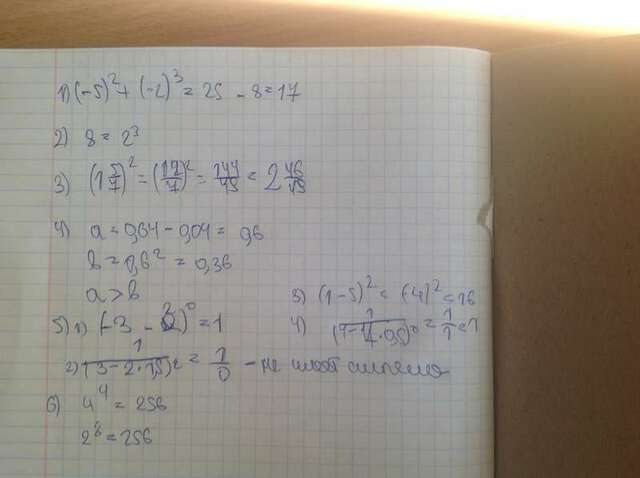 1) (-5)² + (-2)³ = 25 - 8 = 17
2) 8 = 2³
3) (1 5/7)² = (12/7)² = 144/49 = 2 46/49
4) a = 0,64 - 0,04 = 0,6
b = 0,6² = 0,36
a > b
3) (1-5)² = (-4)² = 16
5) 1) (-3 - 2)⁰ = 1
4) 1/(7-14·0,5)⁰ = 1/1 = 1
2) 1/(3-2·1,5)² = 1/0 - не имеет смысла
6) 4⁴ = 256
2⁸ = 256